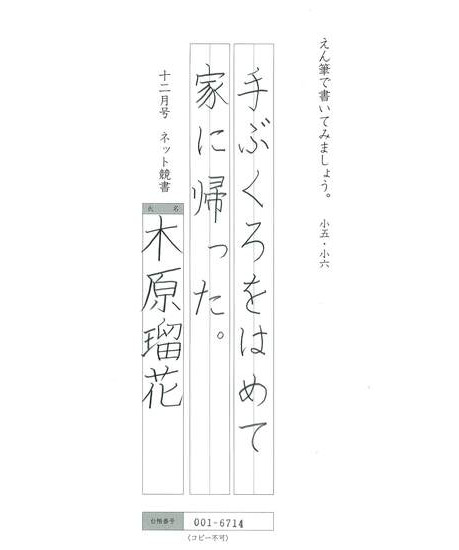 えん筆で書いてみましょう。 小五・小六
手ぶくろをはめて
家に帰った。
十二月号 ネット競書
氏名
木原瑠花
台帳番号 001-6714
(コピー不可)